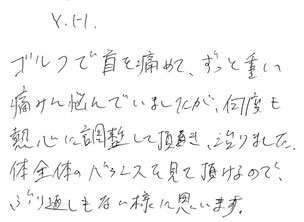 Y.H.
ゴルフで首を痛めて、ずっと重い
痛みに悩んでいましたが、何度も
熱心に調整して頂き、治りました。
体全体のバランスを見て頂けるので、
ぶり返しもない様に思います。